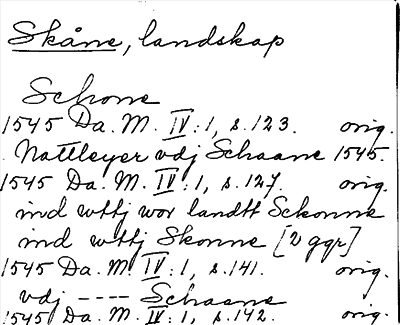 Skåne, landskap
Schone
1545 Da. M. IV:1, s.123. orig.
Nattleyer vdj Schaane 1545.
1545 Da. M. IV:1, s.127. orig.
ind wttj wor landtt Schonne
ind wttj Skonne [2 ggr]
1545 Da. M. IV:1, s.141. orig.
vdj ---- Schaane
1545 Da. M. IV:1, s.142. orig.